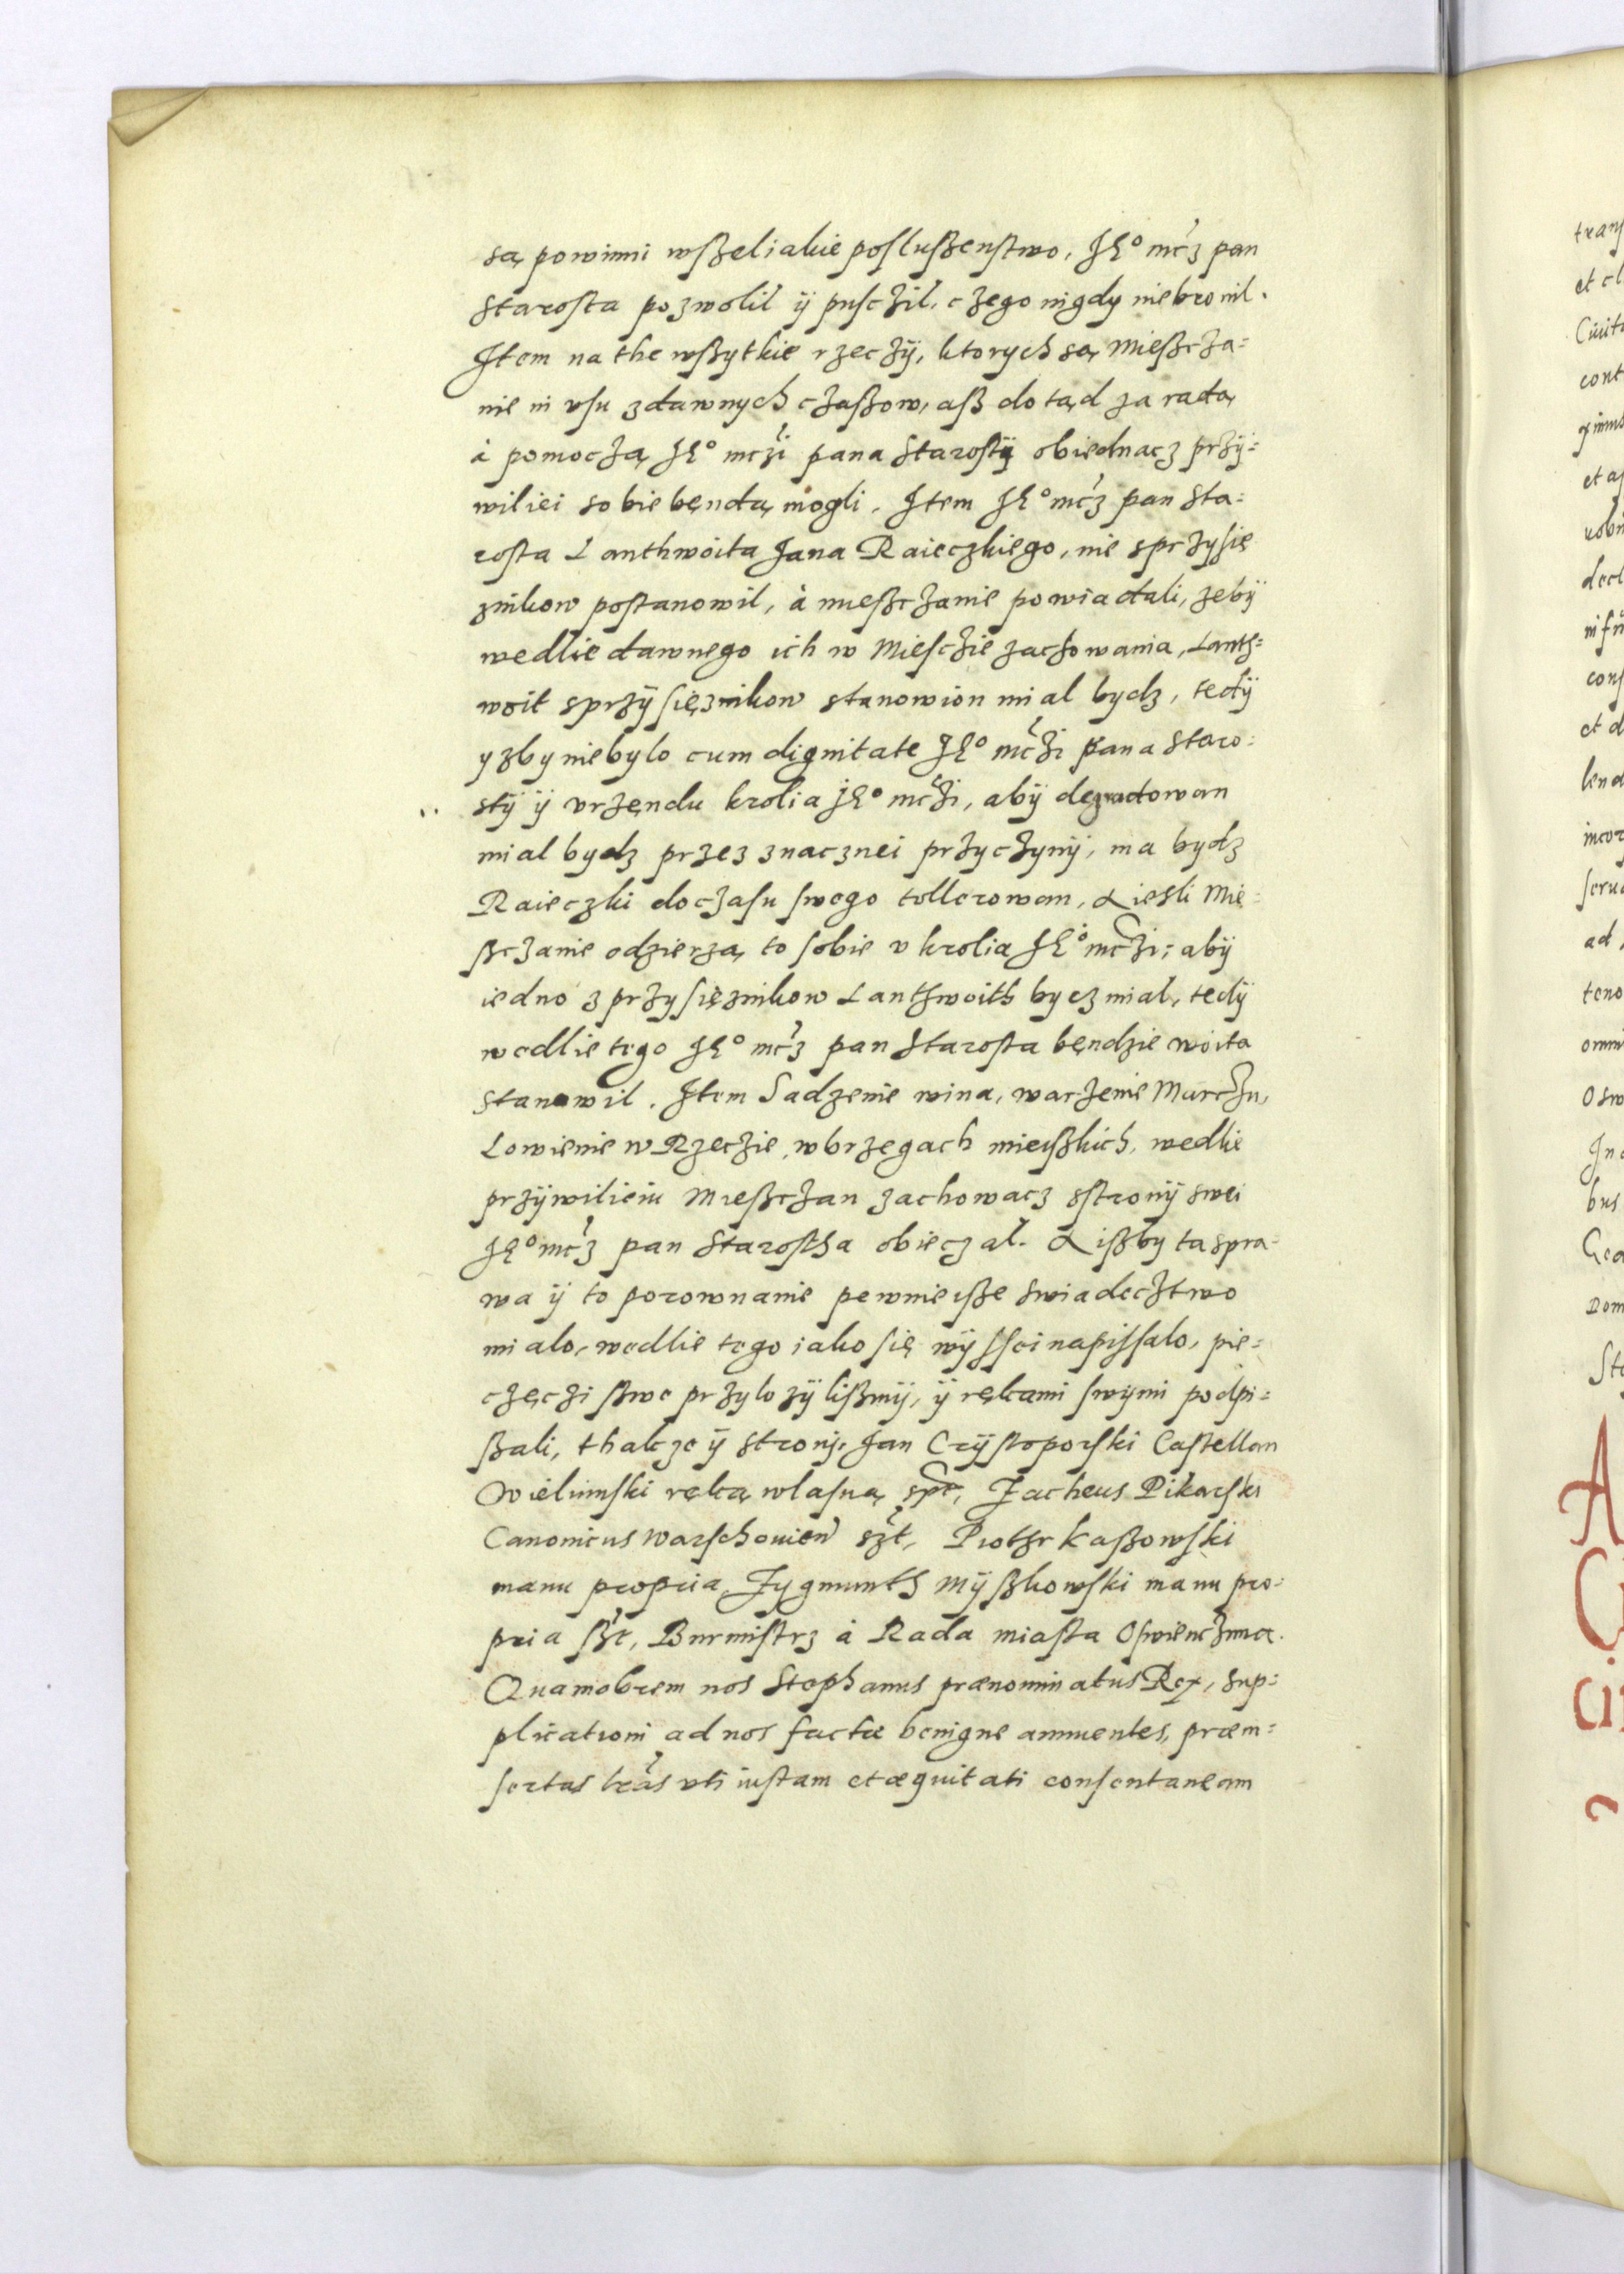 są powinni wſzeliakie poſluſzenſtwo, JE° mćz pan
Staroſta pozwolil ÿ puſczil, czego nigdy niebronil.
Item na the wſzytkie rzeczÿ, ktorych są Mieſzcza=
nie in vſu zdawnych czaſzow, aſz dotąd za radą
à pomoczą JE° mczi pana Staroſtÿ obiednacz przÿ=
wiliei sobie bęndą mogli. Item JE° mćz pan Sta=
roſta Lanthwoita Jana Raieczkiego, nie sprzyſię
znikow poſtanowil, à mieſzczanie powiadali, zebÿ
wedlie dawnego ich w Mieſczie zachowania, Lanth=
woit sprzÿſięznikow stanowion mial bydz, tedÿ
yzby niebylo cum dignitate JE° mczi pana Staro=
stÿ ÿ vrzęndu krolia JE° mczi, abÿ degradowan
mial bydz przez znacznei przyczynÿ, ma bydz
Raieczki do czaſu ſwego tollerowan, & ieſli Mie=
ſzczanie odzierzą to ſobie v krolia JE° mczi; abÿ
iedno z przyſięznikow Lanthwoith bycz mial, tedÿ
wedlie tego JE° mćz pan Staroſta bęndzie woita
stanowil. Item Sadzenie wina, warzenie Marczu,
Lowienie w Rzeczie, w brzegach mieiſzkich, wedlie
przÿwilieiu Mieſzczan zachowacz sſtronÿ swei
JE° mćz pan Staroſtha obieczal. & iſzby ta spra=
wa ÿ to porownanie pewnieiſze swiadecztwo
mialo, wedlie tego iako ſię wÿſſei napiſſalo, pie=
częczi ſzwe przylozÿliſzmÿ, ÿ rękami ſwÿmi podpi=
ſzali, thakze ÿ stronÿ. Jan Crÿſtoporſki Caſtellan
Wielunſki ręką wlaſną spt, Zacheus Pikarſki
Canonicus Warſchouien̄ szt, Piothr Kaſzowſki
manu propria, Zygmunth Mÿſzkowſki manu pro=
pria ſzt, Burmiſtrz à Rada miaſta Oſwienczima.
Quamobrem nos Stephanus prænominatus Rex, sup=
plicationi ad nos factæ benigne annuentes, præin=
ſertas lrās vti iuſtam et æquitati conſentaneam